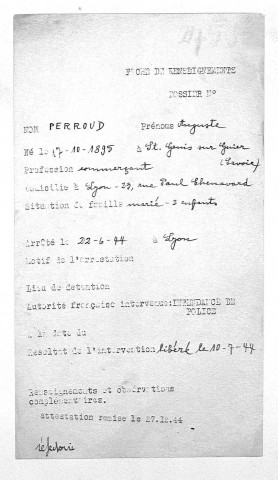 FICHE DE RENSEIGNEMENTS
DOSSIER N°
NOM PERROUD Prénoms Auguste
Né le 17-10-1895 à St. Genis sur Guier
(Savoie)
Profession commerçant
Domicilié à Lyon - 29, rue Paul Chenavard
Situation de famille marié - 2 enfants
Arrêté le 22-6-44 à Lyon
Motif de l'arrestation
Lieu de detention
Autorité française intervenue: INTENDANCE DE
POLICE
A la date du
Résultat de l'intervention libéré le 10-7-44
Renseignements et observations
complémentaires.
attestation remise le 27.12.44